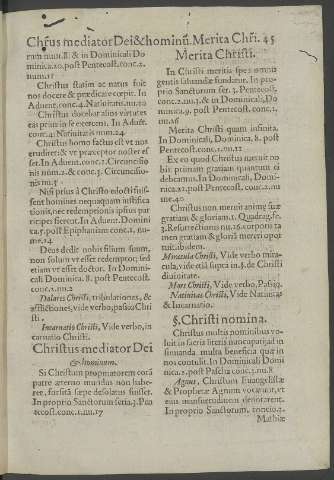 Chrͬus mediator Dei & hominū. Merita Chri. 45
rum num. 8. & in Dominicali Do
minica. 20. post Pentecost. conc. 2.
num. 17
Christus statim ac natus fuit
nos docere & prædicare cœpit. In
Aduent. conc. 4. Natiuitatis. nu. 20
Christus docebat alios virtutes
eas prius in se exercens. In Aduent.
conc. 4. Natiuitatis num. 24.
Christus homo factus est vt nos
erudiret; & vt præceptor noster es
set. In Aduent. conc. 1. Circuncisio
nis num. 2. & conc. 3. Circuncisio-
nis nu. 5
Nisi prius à Christo edocti fuis-
sent homines nequaquam iustifica
tionis, nec redemptionis ipsius par
ticipes fierent. In Aduent. Domini
ca. 5. post Epiphanium conc. 1. nu-
me. 14
Deus dedit nobis filium suum,
non solum vt esset redemptor; sed
etiam vt esset doctor. In Domini-
cali Dominica. 8. post Pentecost.
conc. 2. nu. 2
Dolores Christi, tribulationes, &
afflictiones, vide verbo, passio Chri
sti.
Incarnatio Christi, Vide verbo, in
carnatio Christi.
Christus mediator Dei
& hominum.
Si Christum propitiatorem corā
patre æterno mundus non habe-
ret, forsitā sæpe desolatus fuisset.
In proprio Sanctorum feria. 3. Pen
tecost. conc. 1. nu. 17
Merita Christi.
In Christi meritis spes omni
gentis librandæ fundatur. In pro-
prio Sanctorum fer. 3. Pentecost.
conc. 2. nu. 3. & in Dominicali, Do
minica. 9. post Pentecost. conc. 1.
nu. 16
Merita Christi quam infinita.
In Dominicali, Dominica. 8. post
Pentecost. conc. 1. nu. 12
Ex eo quod Christus natus est no
bis primam gratiam quantum ei
debeamus. In Dominicali, Domi-
nica. 21. post Pentecost. conc. 2. nu
me. 40
Christus non meruit animę suæ
gratiam & gloriam. t. Quadrag. fe.
3. Resurrectionis nu. 26. corporis ta
men gratiam & gloriā mereri opor
tuit. ibidem.
Miracula Christi, Vide verbo mira-
cula, vide etiā supra in. §. de Christi
diuinitate.
Mors Christi, Vide verbo, Passio.
Natiuitas Christi, Vide Natiuitas
& Incarnatio.
§. Christi nomina.
Christus multis nominibus vo-
luit in sacris literis nuncupari, ad in
sinuanda multa beneficia quæ in
nos contulit. In Dominicali Domi
nica. 2. post Pascha conc. 3. nu. 8
Agnus, Christum Euangelistæ
& Prophetæ Agnum vocarunt, vt
eius mansuetudinem denotarent.
In proprio Sanctorum, concio. 2.
Mathiæ